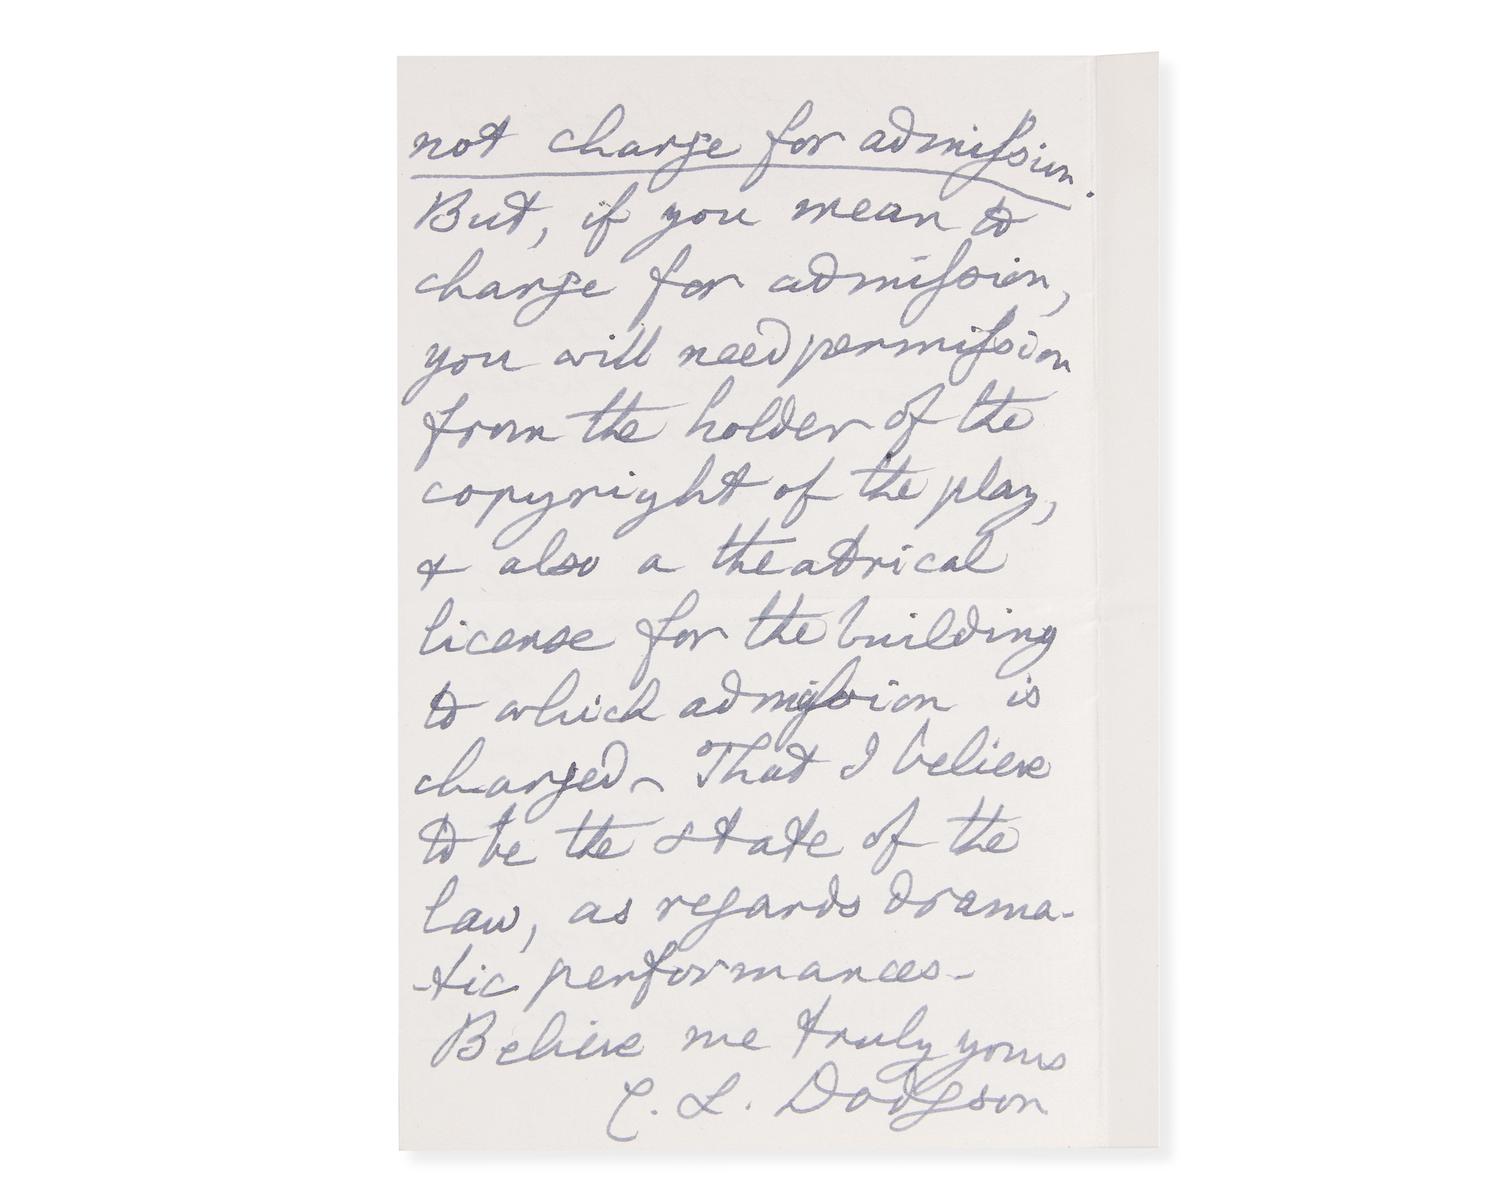 not charge for admission.
But, if you mean to
charge for admission,
you will need permission
from the holder of the
copyright of the play,
& also a theatrical
license for the building
to which admission is
charged. That I believe
to be the state of the
law, as regards drama-
-tic performances-
Believe me truly yours
C. L. Dodgson